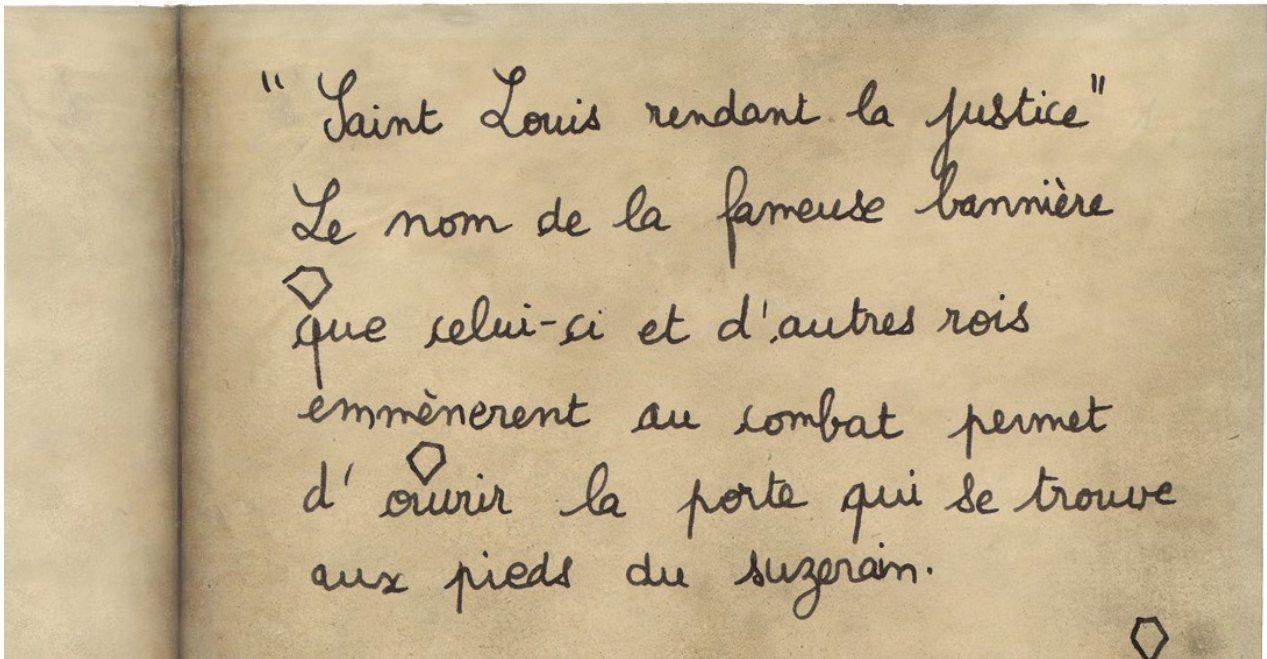 " Saint Louis rendant la justice"
Le nom de la fameuse bannière
que celui-ci et d'autres rois
emmènerent au combat permet
d' ouvrir la porte qui se trouve
aux pieds du suzerain.